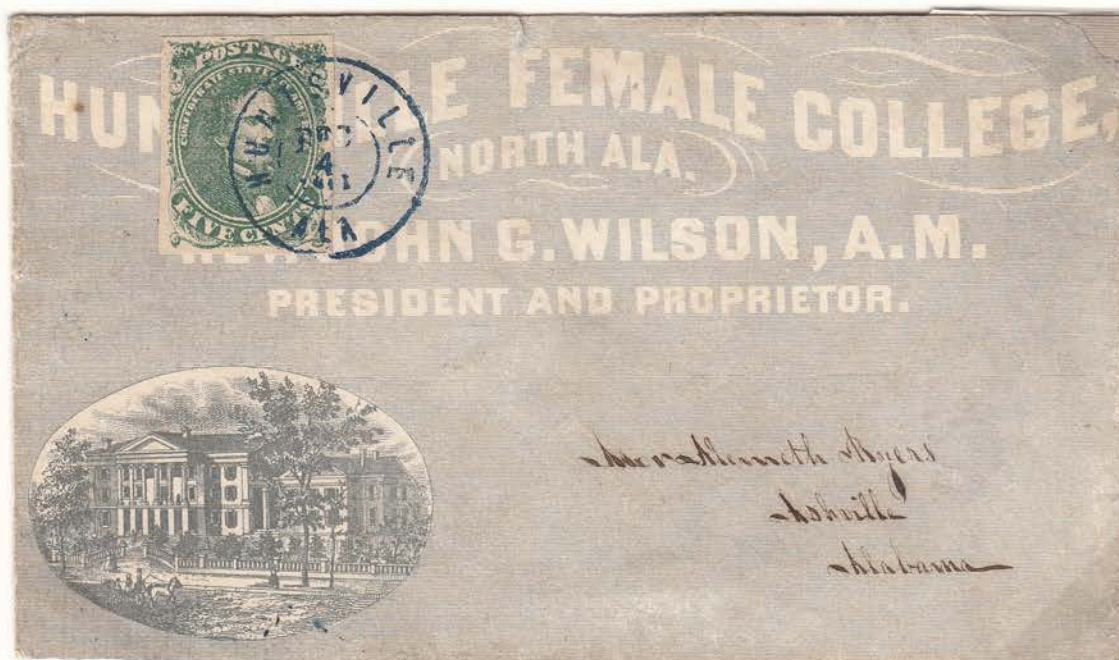 POSTAGE
CONFEDERATE STATES
FIVE CENTS
HUNTSVILLE
DEC
4
1861
ALA
HUN LE FEMALE COLLEGE.
NORTH ALA.
JOHN G. WILSON, A.M.
PRESIDENT AND PROPRIETOR.
Myers
Ashville
Alabama